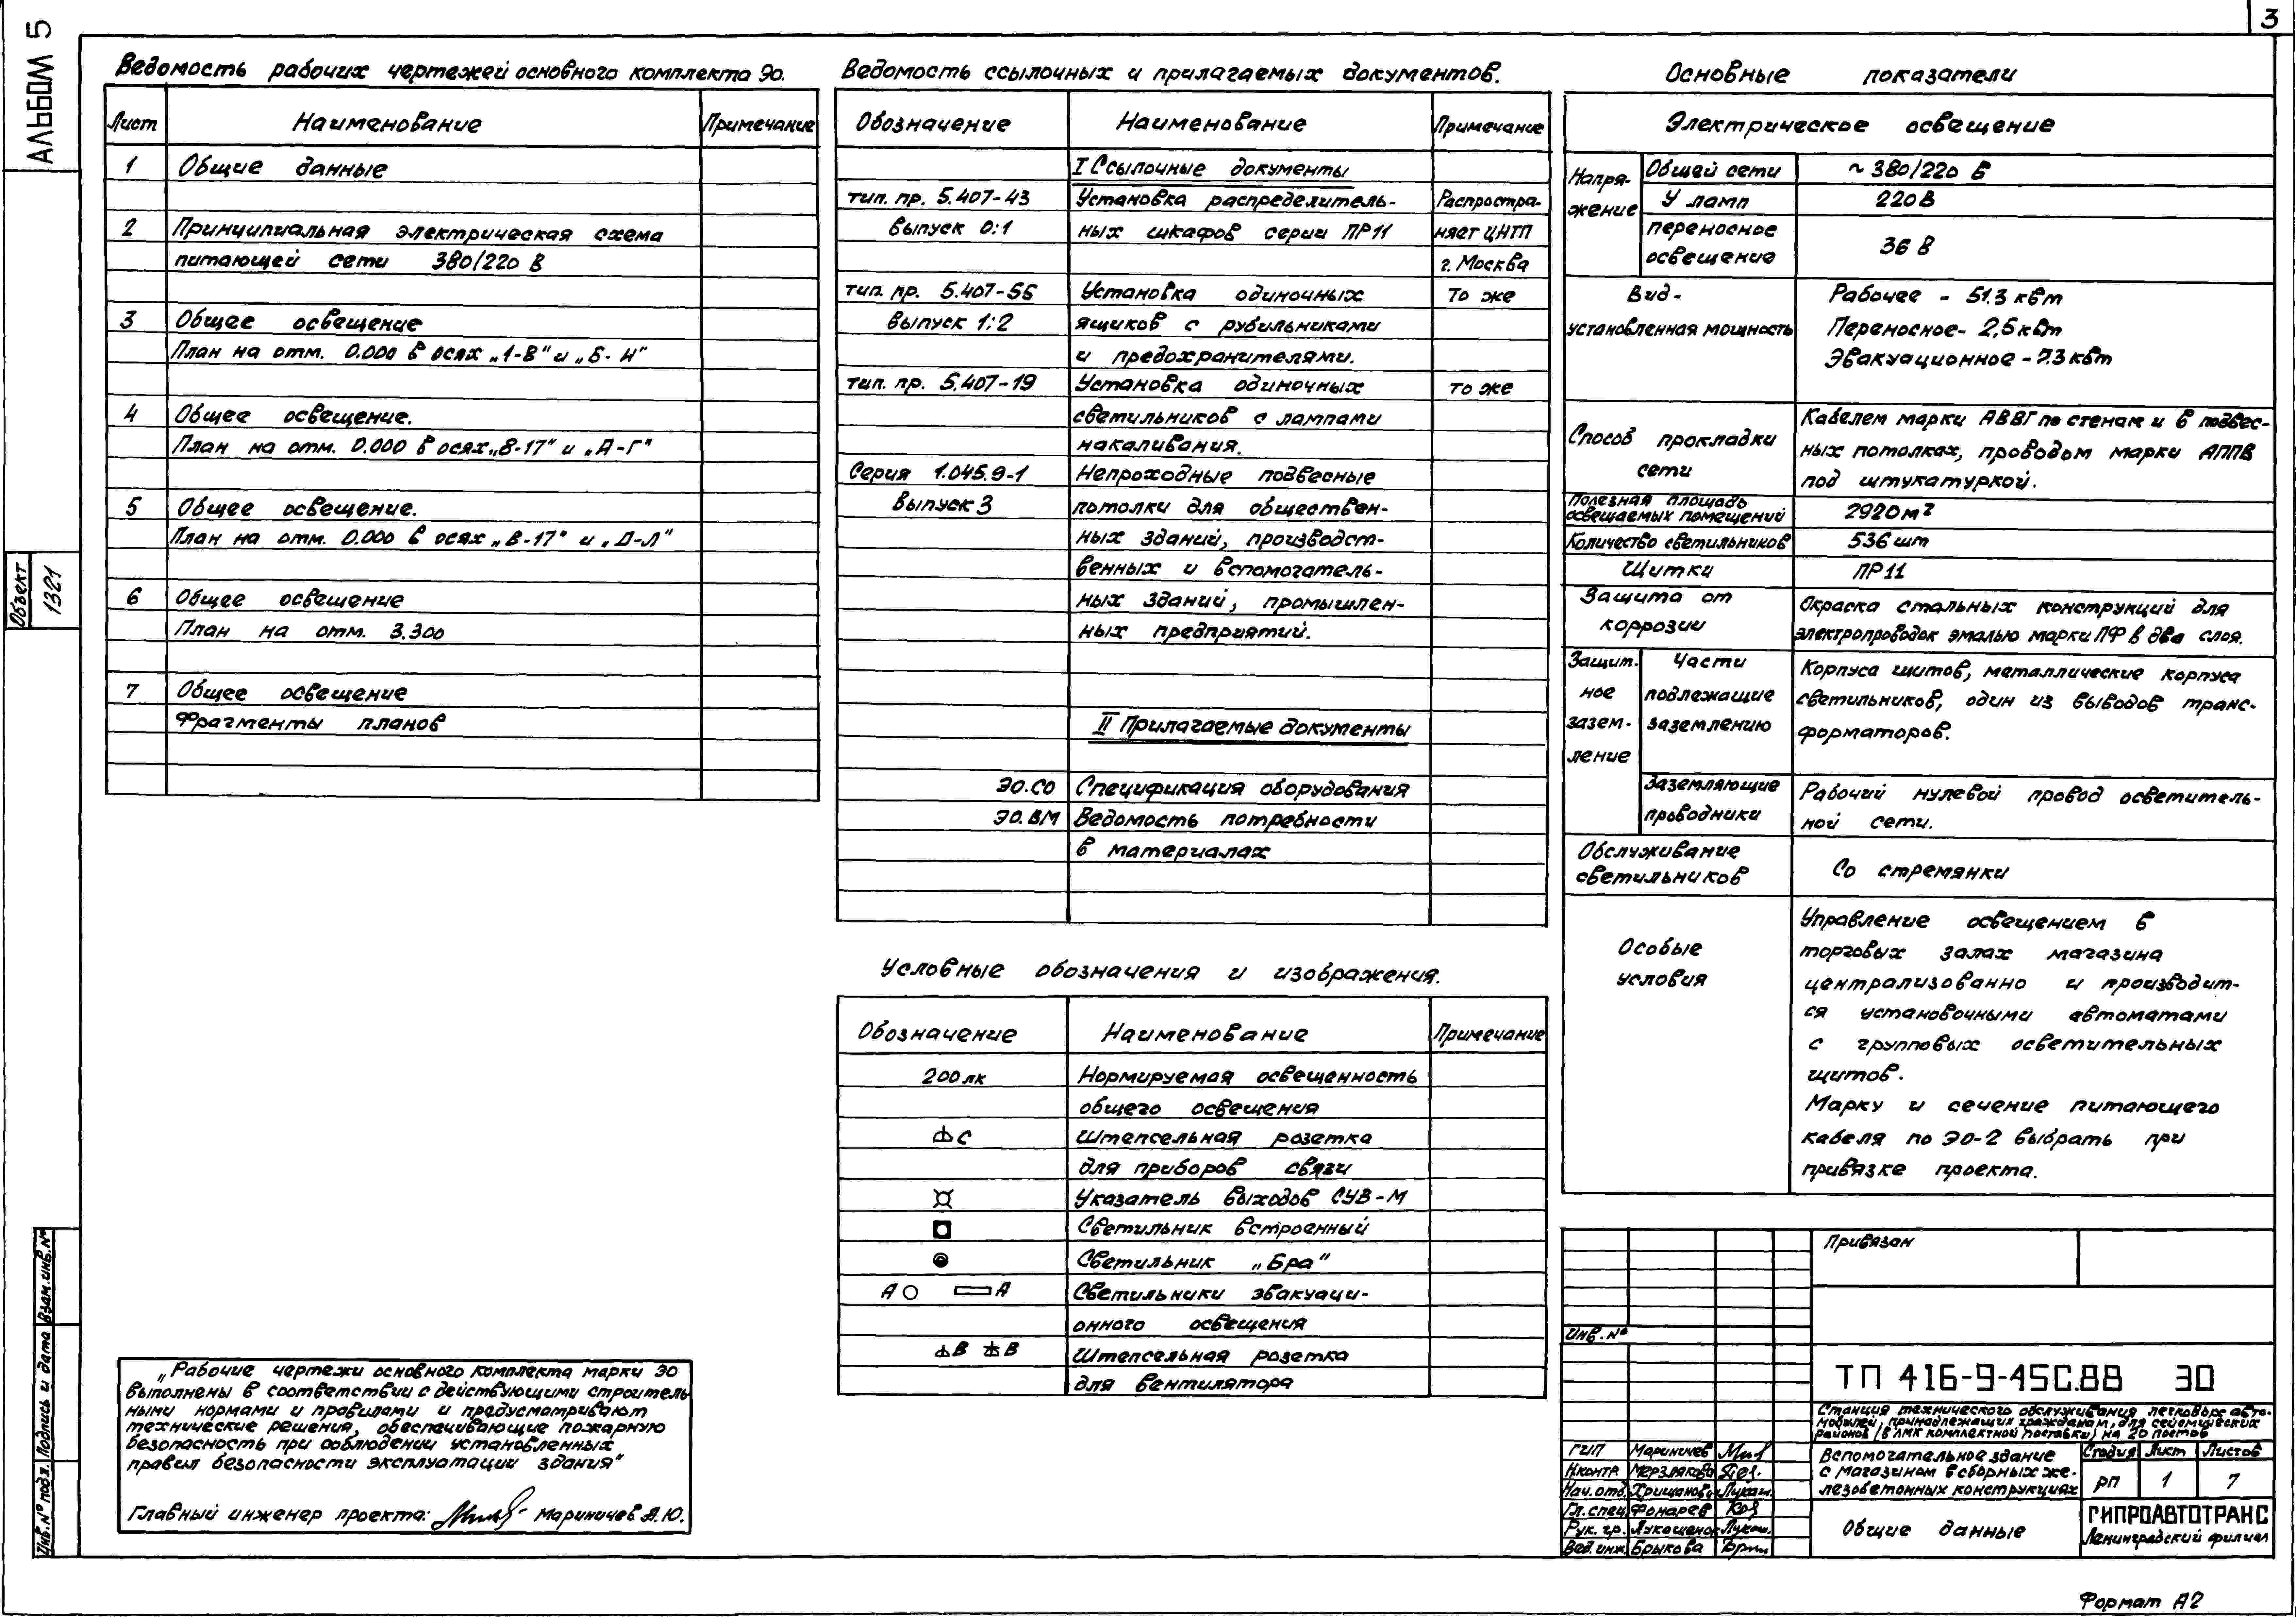 3
АЛЬБОМ 5
Объект
1321
Взам.инв.№
Подпись и дата
Инв.№ подл.
Ведомость рабочих чертежей основного комплекта ЭО.
Лист Наименование Примечание
1 Общие данные
2 Принципиальная электрическая схема
питающей сети 380/220 В
3 Общее освещение
План на отм. 0.000 в осях „1-8" и „Б-И"
4 Общее освещение.
План на отм. 0.000 в осях „8-17" и „А-Г"
5 Общее освещение.
План на отм. 0.000 в осях „8-17" и „Д-Л"
6 Общее освещение
План на отм. 3.300
7 Общее освещение
Фрагменты планов
„Рабочие чертежи основного комплекта марки ЭО
выполнены в соответствии с действующими строитель
ными нормами и правилами и предусматривают
технические решения, обеспечивающие пожарную
безопасность при соблюдении установленных
правил безопасности эксплуатации здания"
Главный инженер проекта: Мариничев А.Ю.
Ведомость ссылочных и прилагаемых документов.
Обозначение Наименование Примечание
I Ссылочные документы
тип. пр. 5.407-43 Установка распределитель- Распростра-
выпуск 0:1 ных шкафов серии ПР11 няет ЦИТП
г. Москва
тип. пр. 5.407-55 Установка одиночных То же
выпуск 1:2 ящиков с рубильниками
и предохранителями.
тип. пр. 5.407-19 Установка одиночных то же
светильников с лампами
накаливания.
Серия 1.045.9-1 Непроходные подвесные
выпуск 3 потолки для обществен-
ных зданий, производст-
венных и вспомогатель-
ных зданий, промышлен-
ных предприятий.
II Прилагаемые документы
ЭО.СО Спецификация оборудования
ЭО.ВМ Ведомость потребности
в материалах
Условные обозначения и изображения.
Обозначение Наименование Примечание
200 лк Нормируемая освещенность
общего освещения
С Штепсельная розетка
для приборов связи
Указатель выходов СУВ-М
Светильник встроенный
Светильник „Бра"
А А Светильники эвакуаци-
онного освещения
В В Штепсельная розетка
для вентилятора
Основные показатели
Электрическое освещение
Напря-
жение
Общей сети ~ 380/220 В
У ламп 220 В
переносное
освещение 36 В
Вид- Рабочее - 51.3 квт
установленная мощность Переносное - 2,5 квт
Эвакуационное - 7.3 квт
Способ прокладки
сети
Кабелем марки АВВГ по стенам и в подвес-
ных потолках, проводом марки АППВ
под штукатуркой.
Полезная площадь
освещаемых помещений 2920 м2
Количество светильников 536 шт
Щитки ПР11
Защита от
коррозии
Окраска стальных конструкций для
электропроводок эмалью марки ПФ в два слоя.
Защит-
ное
зазем-
ление
Части
подлежащие
заземлению
Корпуса щитов, металлические корпуса
светильников, один из выводов транс-
форматоров.
Заземляющие
проводники
Рабочий нулевой провод осветитель-
ной сети.
Обслуживание
светильников Со стремянки
Особые
условия
Управление освещением в
торговых залах магазина
централизованно и производит-
ся установочными автоматами
с групповых осветительных
щитов.
Марку и сечение питающего
кабеля по ЭО-2 выбрать при
привязке проекта.
Привязан
Инв.№
ТП 416-9-45С.88 ЭО
Станция технического обслуживания легковых авто-
мобилей, принадлежащих гражданам, для сейсмических
районов (в ЛМК комплектной поставки) на 20 постов
ГИП Мариничев
Н.контр Мерзлякова
Нач.отд. Хрищанова
Гл.спец. Фонарев
Рук. гр. Лукошенок
Вед.инж. Брыкова
Вспомогательное здание
с магазином в сборных же-
лезобетонных конструкциях
Стадия Лист Листов
РП 1 7
Общие данные
ГИПРОАВТОТРАНС
Ленинградский филиал
Формат А2